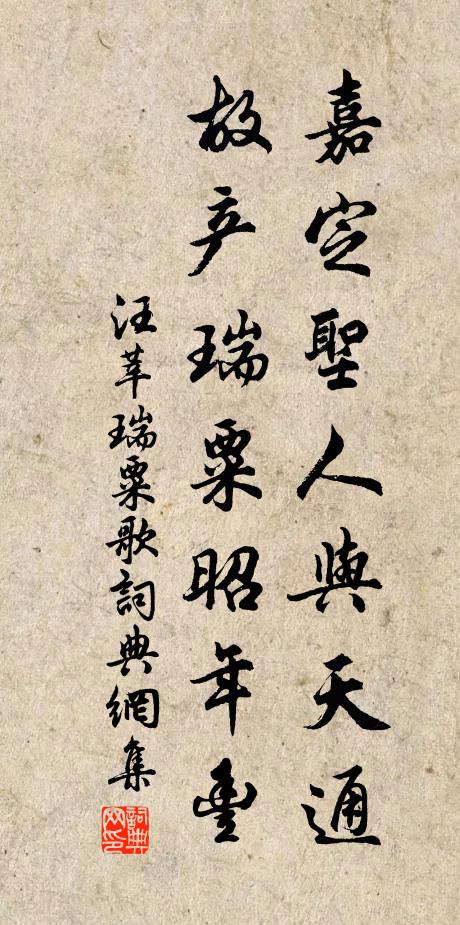 嘉定聖人與天通
故产瑞粟昭年豐
汪莘瑞粟歌詞典網集
詞典網印